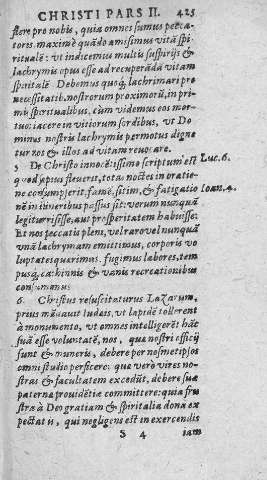 CHRISTI PARS II. 425
flere pro nobis, quia omnes sumus pecca-
tores. maximè quãdo amisimus vitã spi-
ritualẽ: vt indicemus multis suspirijs &
lachrymis opus esse ad recuperãdã vitam
spiritalẽ Debemus quoq; lachrimari pro
necessitatib. nostrorum proximorũ, in pri-
mis spiritualibus, cùm videmus eos mor-
tuos iacere in vitiorum sordibus, vt Do
minus nostris lachrymis permotus digne
tur nos & illos ad vitam reuocare.
5 De Christo innocẽtissimo scriptum est Luc. 6.
quod sæpius fleuerit, totas noctes in oratio-
ne consumpserit, famẽ, sitim, & fatigatio Ioan. 4.
nẽ in itineribus passus sit: verum nunquã
legitur risisse, aut prosperitatem habuisse:
Et nos peccatis pleni, vel raro vel nunquã
vnã lachrymam emittimus, corporis vo
luptates quærimus. fugimus labores, tem
pusq; cachinnis & vanis recreationibus
consumimus
6. Christus resuscitaturus Lazarum,
prius mãdauit Iudeis, vt lapidẽ tollerent
à monumento, vt omnes intelligerẽt hãc
suã esse voluntatẽ, nos, quæ nostri officij
sunt & muneris, debere per nosmetipsos
omni studio perficere: quæ verò vires no-
stras & facultatem excedũt, debere suæ
paternæ prouidẽtiæ committere: quia fru
strà à Deo gratiam & spiritalia dona ex
pectat is, qui negligens est in exercendis
S 4 iam